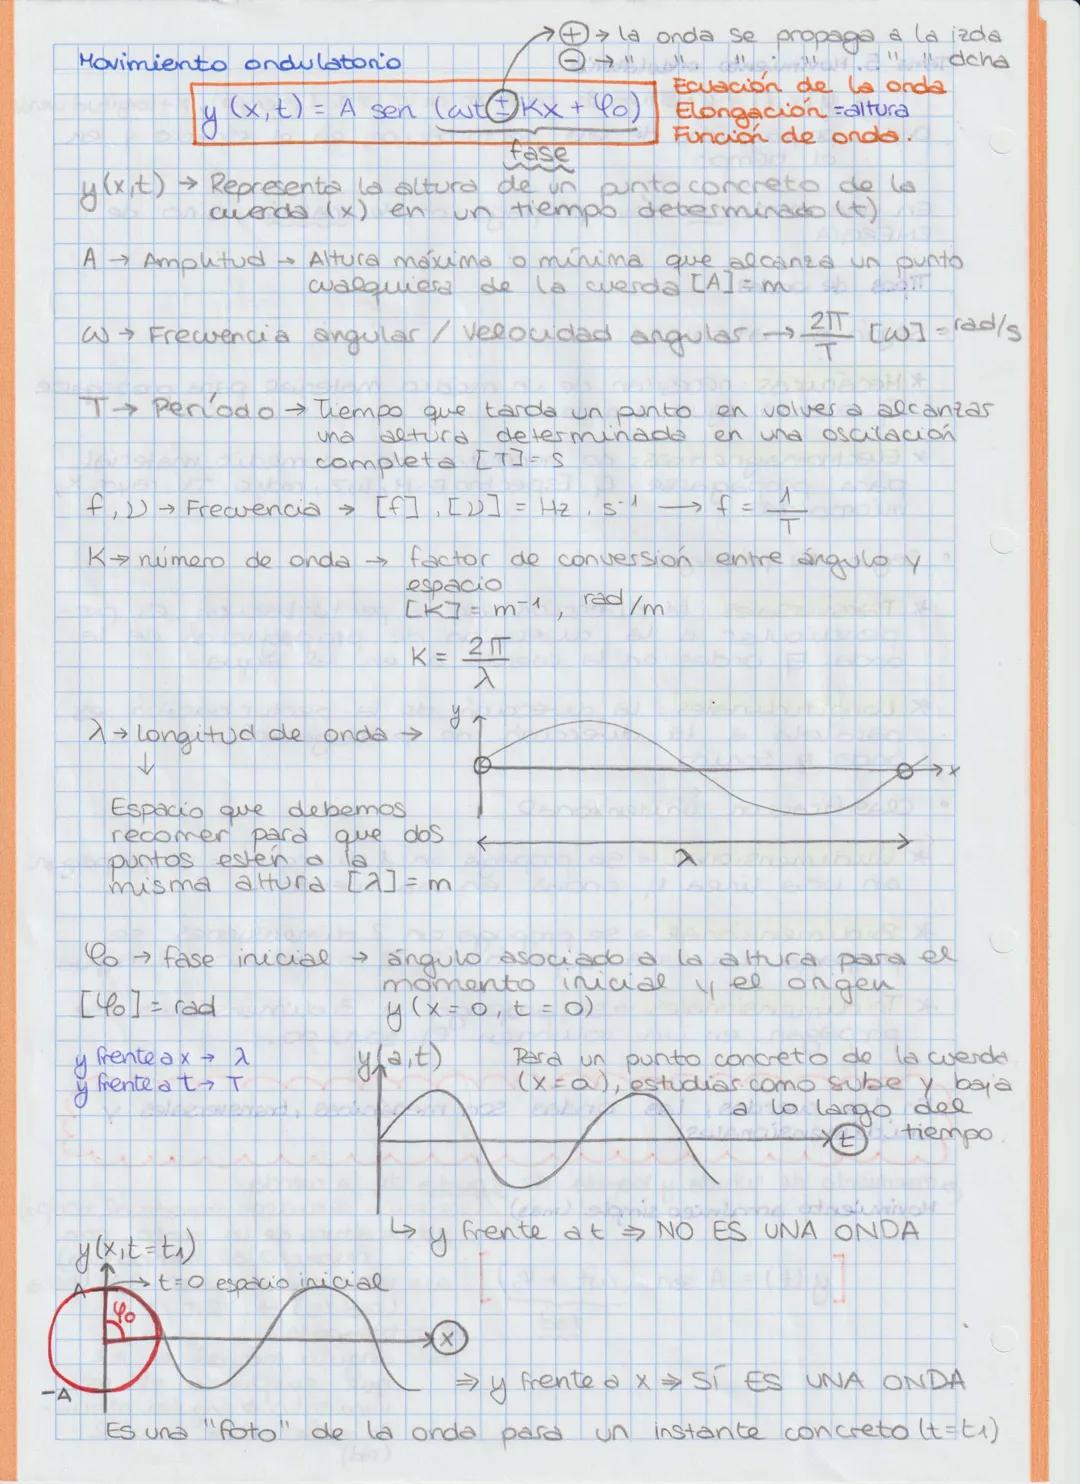 ⊕ → la onda se propaga a la izda
⊖ → " " " " " " dcha
Movimiento ondulatorio
y (x,t) = A sen (ωt ± Kx + φ₀)
fase
Ecuación de la onda
Elongación = altura
Función de onda.
y(x,t) → Representa la altura de un punto concreto de la
cuerda (x) en un tiempo determinado (t)
A → Amplitud → Altura máxima o mínima que alcanza un punto
cualquiera de la cuerda [A] = m
ω → Frecuencia angular / Velocidad angular → 2π/T [ω] = rad/s
T → Período → Tiempo que tarda un punto en volver a alcanzar
una altura determinada en una oscilación
completa [T] = s
f, ν → Frecuencia → [f], [ν] = Hz, s⁻¹ → f = 1/T
K → número de onda → factor de conversión entre ángulo y
espacio
[K] = m⁻¹, rad/m
K = 2π/λ
λ → longitud de onda →
↓
y
x
Espacio que debemos
recorrer para que dos
puntos estén a la
misma altura [λ] = m
λ
φ₀ → fase inicial → ángulo asociado a la altura para el
momento inicial y el origen
[φ₀] = rad
y (x = 0, t = 0)
y frente a x → λ
y frente a t → T
y(a,t)
Para un punto concreto de la cuerda
(x = a), estudiar como sube y baja
a lo largo del
tiempo.
t
↳ y frente a t ⇒ NO ES UNA ONDA
y(x,t=t₁)
A
→ t=0 espacio inicial
φ₀
x
-A
⇒ y frente a x ⇒ SÍ ES UNA ONDA
Es una "foto" de la onda para un instante concreto (t=t₁)